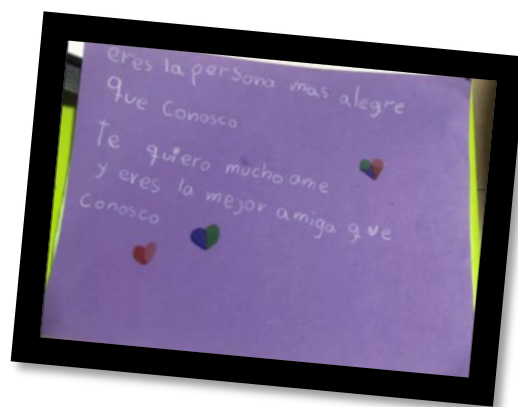 eres la persona mas alegre
que Conosco
Te quiero mucho ame
y eres la mejor amiga que
Conosco